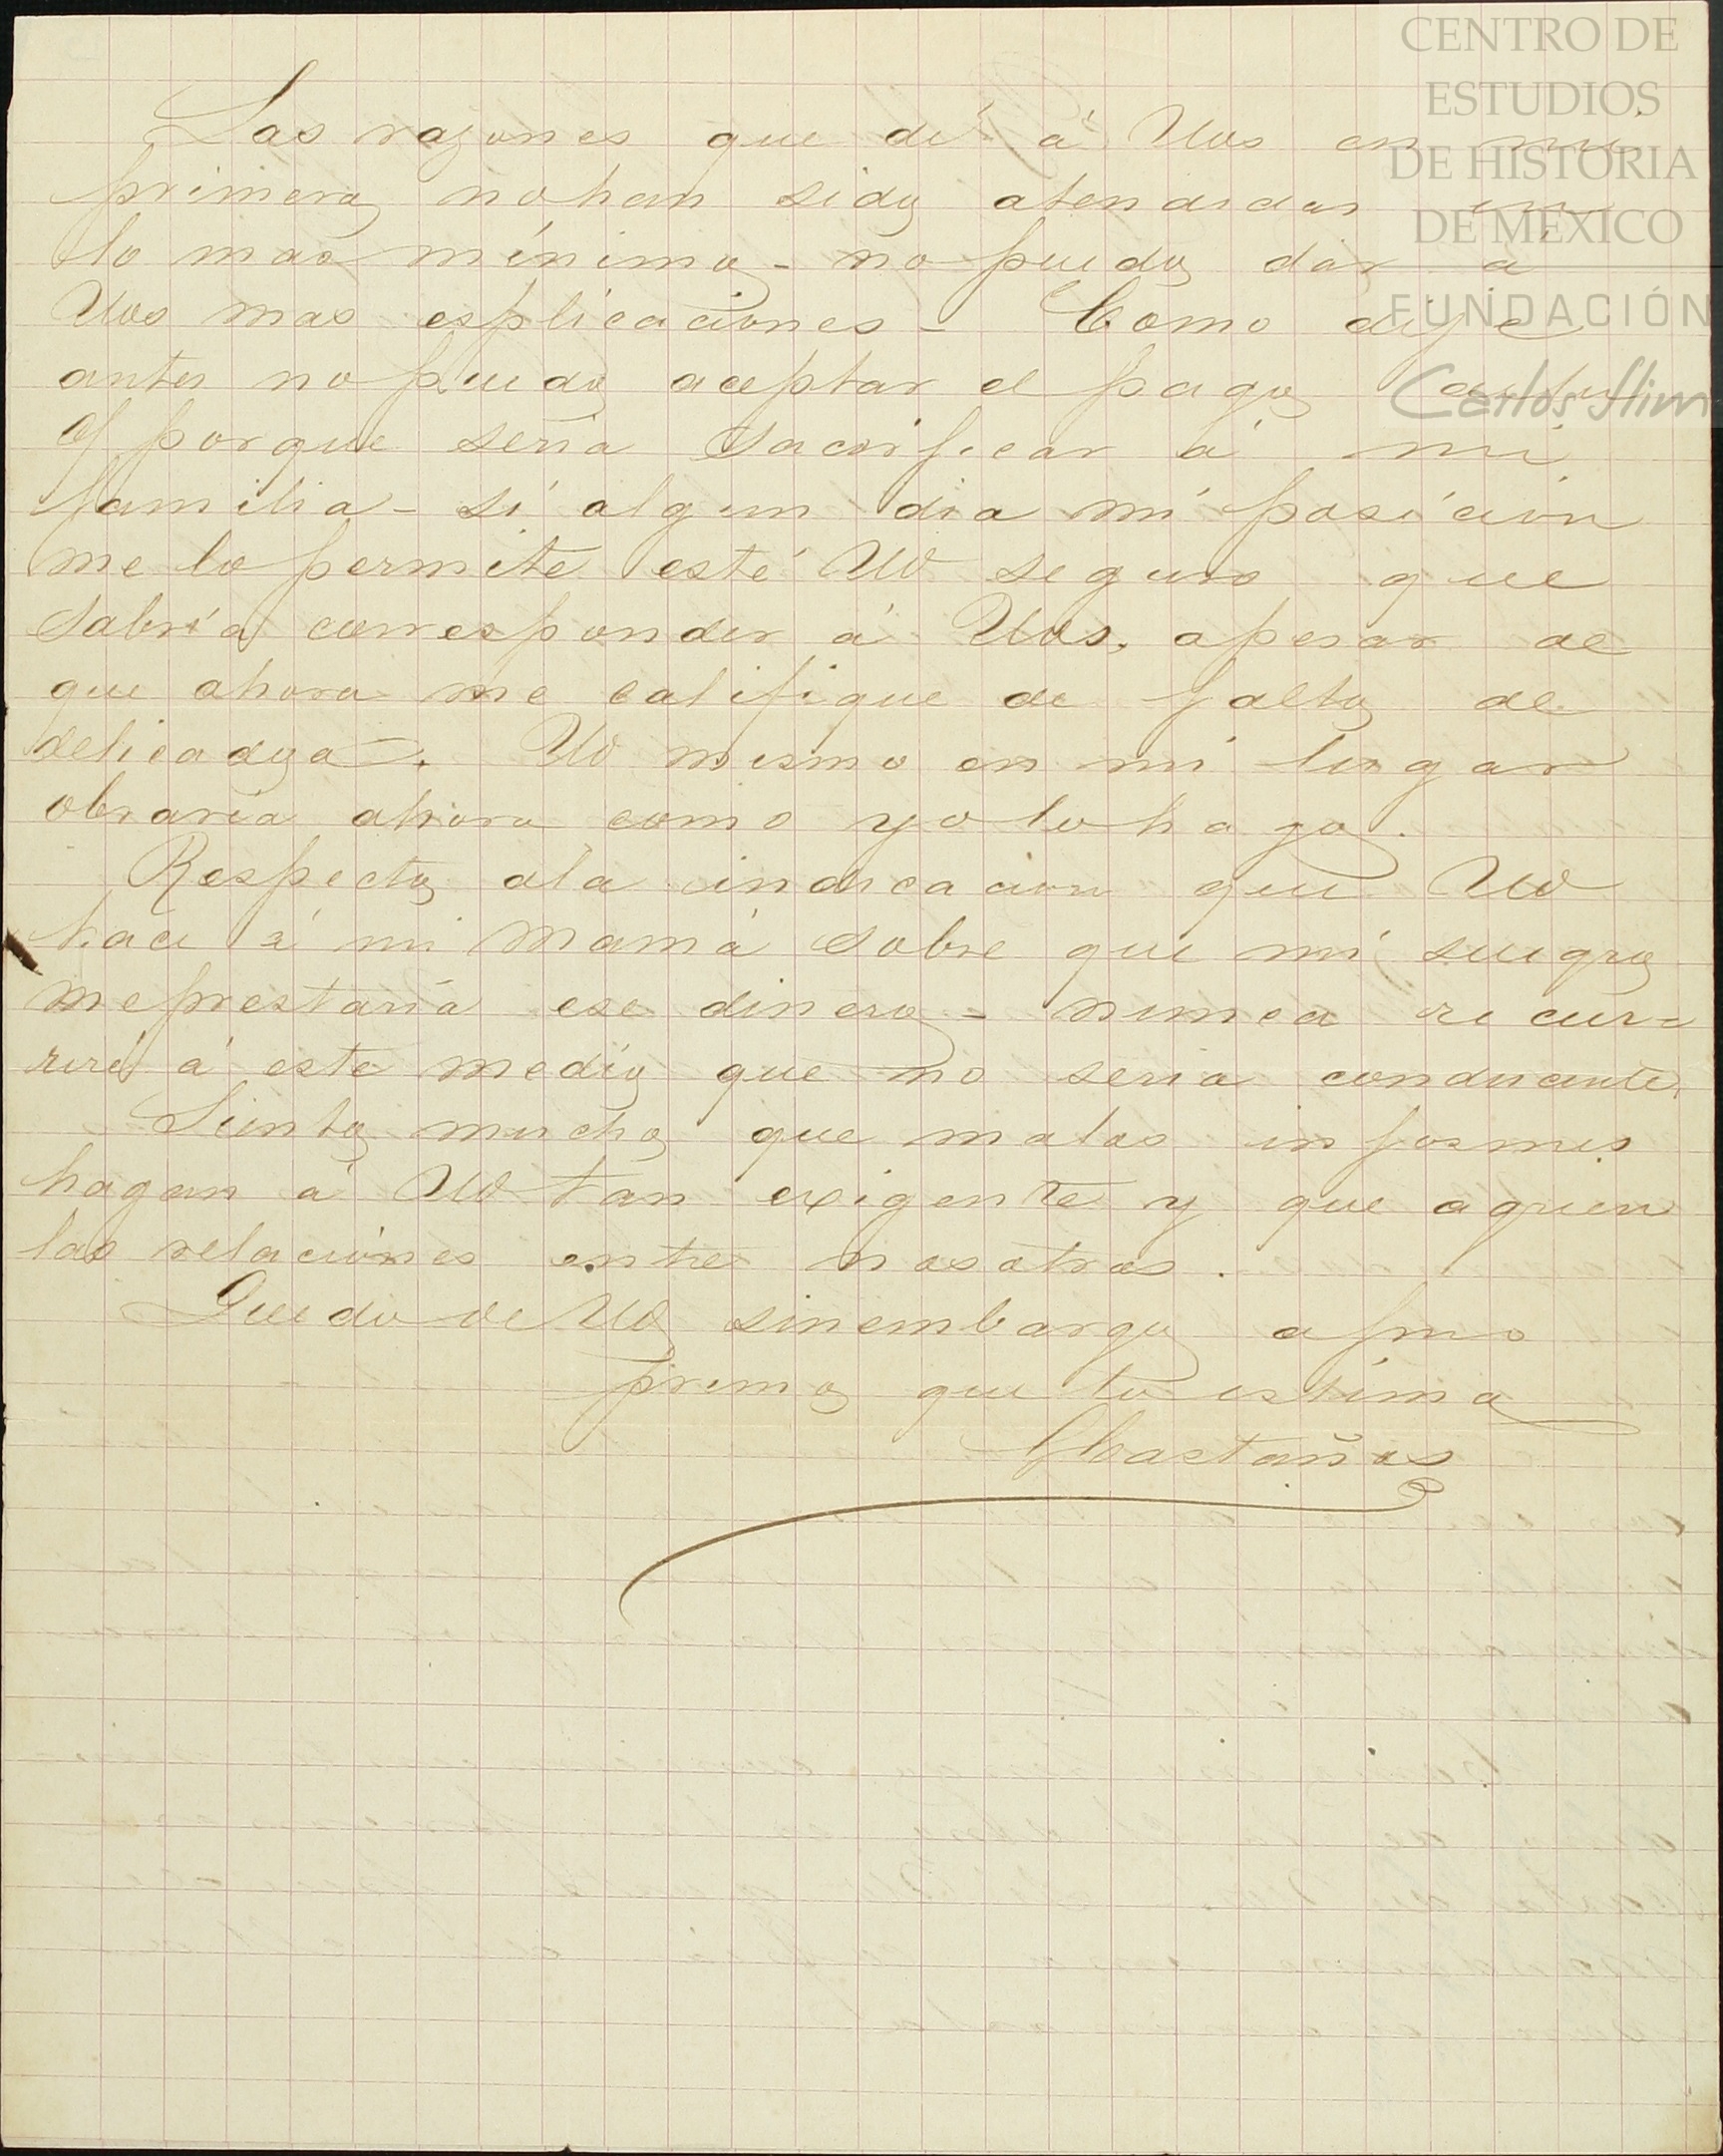 CENTRO DE
ESTUDIOS
DE HISTORIA
DE MÉXICO
FUNDACIÓN
Carlos Slim
Las razones que dí á Uds en mi
primera no han sido atendidas en
lo mas mínimo - no puedo dar á
Uds mas esplicaciones - Como dije
antes no puedo aceptar el pago
porque seria sacrificar á mi
familia - si algun dia mi posición
me lo permite esté Ud seguro que
sabría corresponder á Uds. apesar de
que ahora me califique de falto de
delicadeza -. Ud mismo en mi lugar
obraría ahora como yo lo hago.
Respecto ala indicacion que Ud
hace á mi Mamá sobre que mi suegro
me prestaría ese dinero - nunca recur-
riré á este medio que no seria conducente.
Siento mucho que malos informes
hagan á Ud tan exigente y que agrien
las relaciónes entre nosotros.
Quedo de Ud sinembargo afmo
primo que lo estima